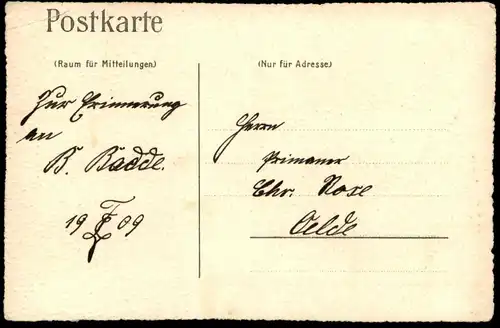 Postkarte
(Raum für Mitteilungen)
Zur Erinnerung
an
B. Badde.
19 09
(Nur für Adresse)
Herrn
Primaner
Chr. Rose
Oelde